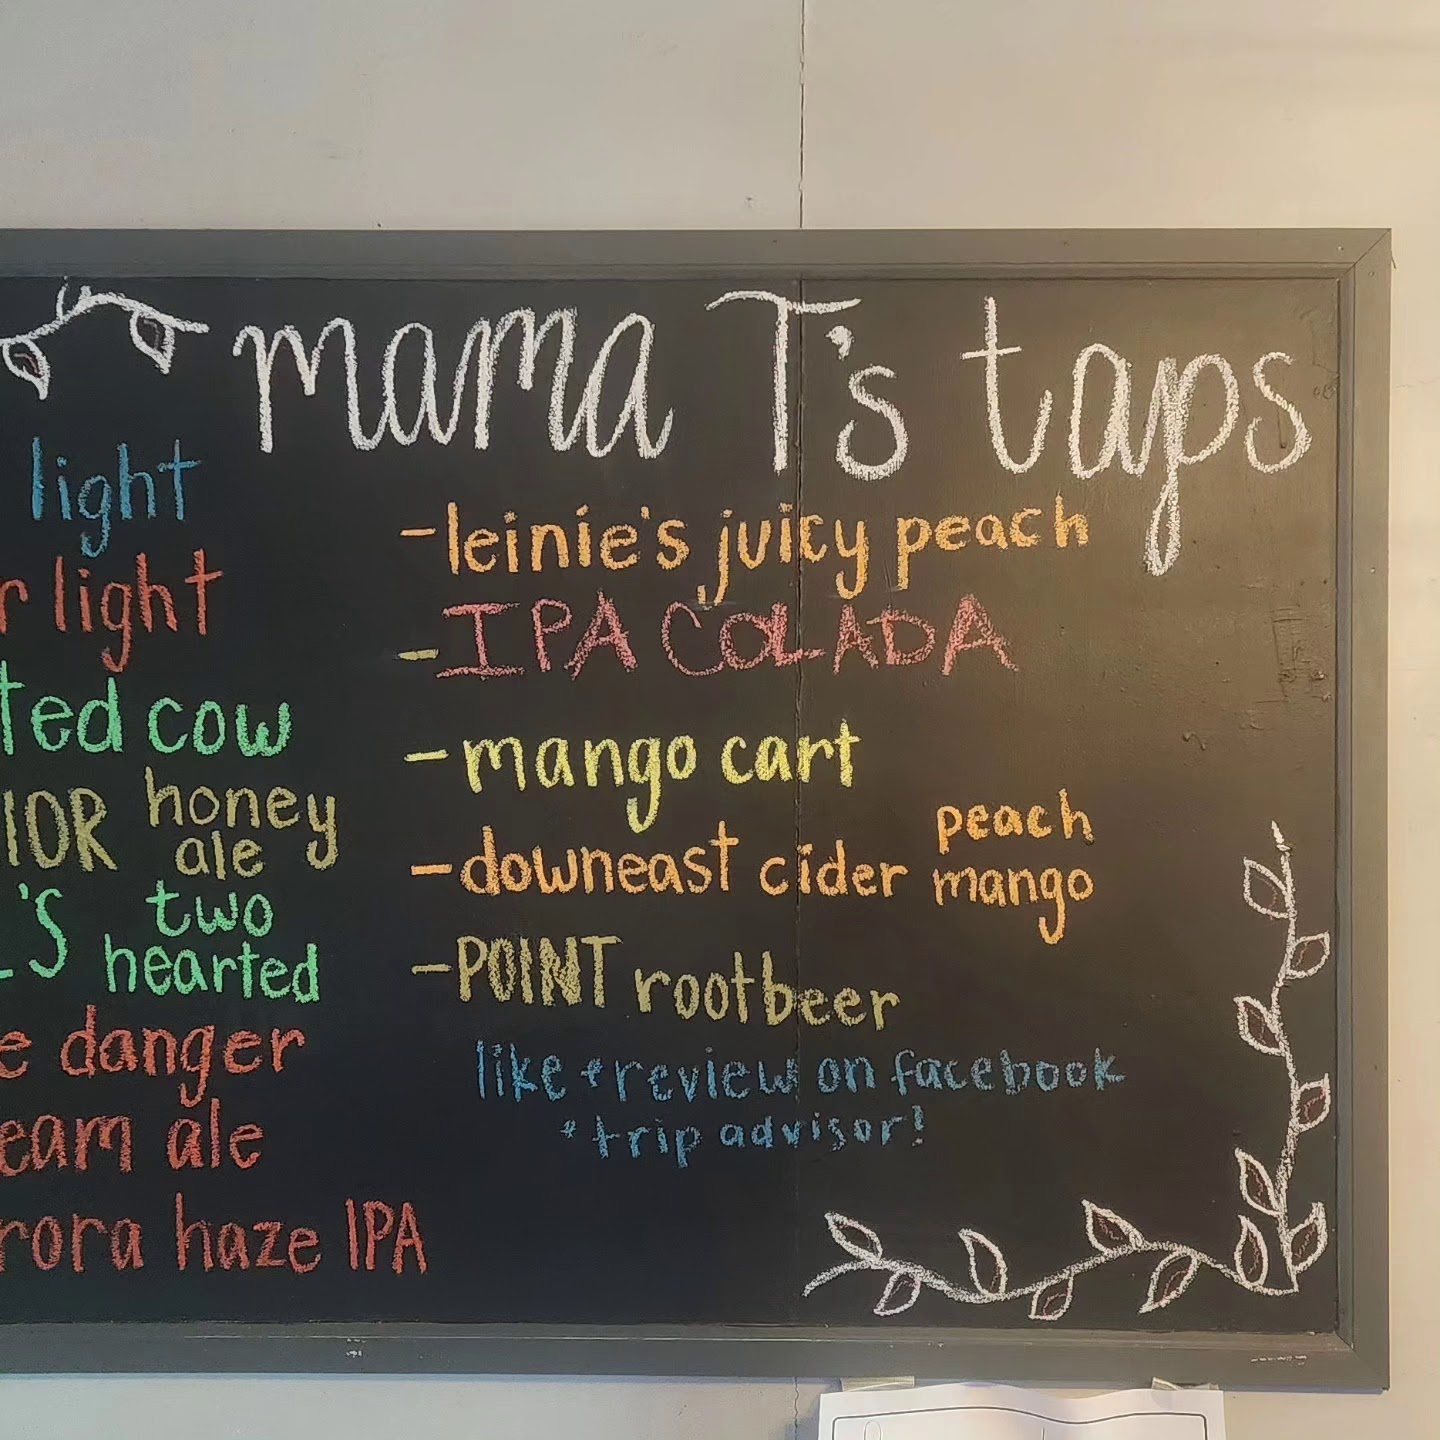 mama T's taps
light
r light
ted cow
IOR honey
ale
'S two
hearted
e danger
eam ale
rora haze IPA
-leinie's juicy peach
-IPA COLADA
-mango cart
-downeast cider peach
mango
-POINT rootbeer
like + review on facebook
+ trip advisor!